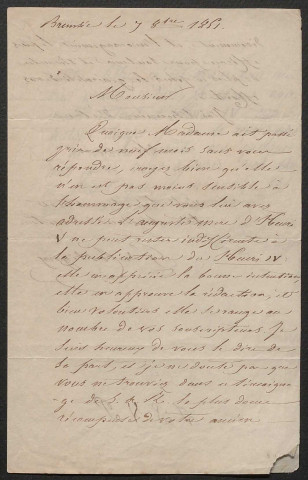 Brunsée le 7 8bre 1851
Monsieur
Quoique Madame ait passé
près de neuf mois sans vous
répondre, croyez bien qu'elle
n'en est pas moins sensible à
l'hommage que vous lui avez
adressé. L'auguste mère d'Henri
V ne peut rester indifférente à
la publication du Henri IV
elle en apprécie la bonne intention,
elle en approuve la rédaction, et
bien volontiers elle se range au
nombre de vos souscripteurs. Je
suis heureux de vous le dire de
sa part, et je ne doute pas que
vous ne trouviez dans ce témoigna-
-ge de S. A. R. la plus douce
récompense de votre ancien